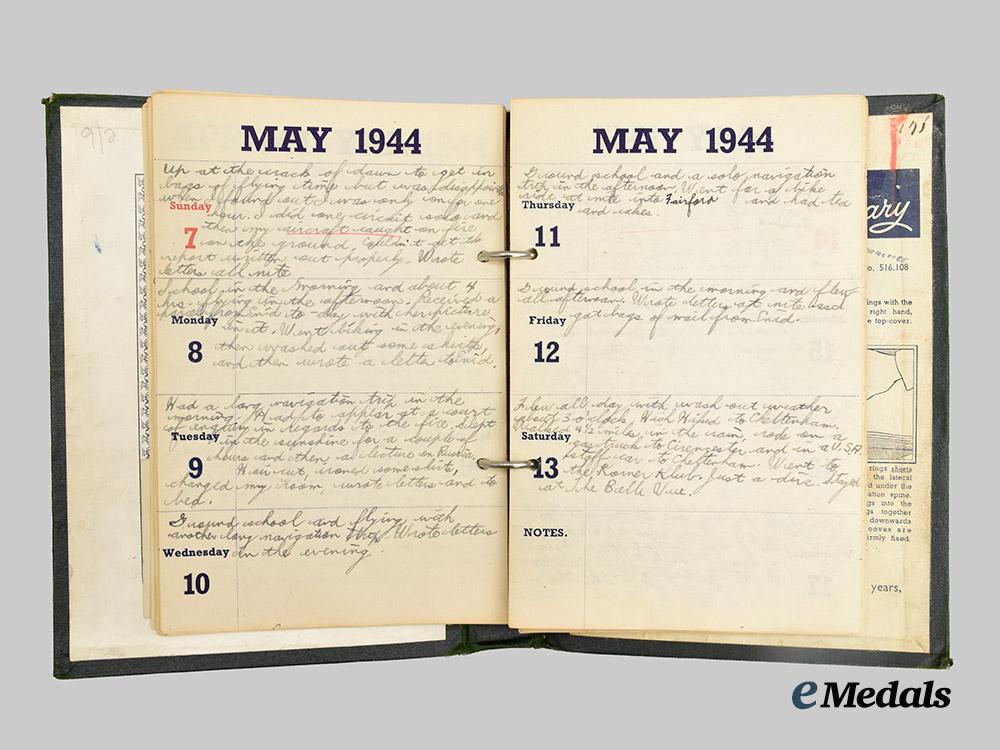 9/2
MAY 1944
Up at the crack of dawn to get in
bags of flying time but was disappointed
when I found out I was only on for one
Sunday
7
hour. I did one circuit solo and
then my aircraft caught on fire
on the ground. Didn't get the
report written out properly. Wrote
letters all nite
School in the morning and about 4
hrs. flying in the afternoon. Received a
parcel from Enid to-day with her picture
Monday
8
in it. Went biking in the evening,
then washed out some shirts,
and then wrote a letter to Enid.
Had a long navigation trip in the
morning. Had to appear at a court
of enquiry in regards to the fire. Slept
Tuesday
9
in the sunshine for a couple of
hours and then a lecture on Russia.
Haircut, ironed some shirts,
changed my room, wrote letters and to
bed.
Ground school and flying with
another long navigation trip. Wrote letters
Wednesday
10
in the evening.
MAY 1944
Ground school and a solo navigation
trip in the afternoon. Went for a bike
ride at nite into Fairford and had tea
Thursday
11
and cakes.
Ground school in the morning and flew
all afternoon. Wrote letters at nite and
Friday
12
got bags of mail from Enid.
Flew all day with wash out weather
about 3 o'clock. Hitch Hiked to Cheltenham.
Walked 4 1/2 miles in the rain, rode on a
Saturday
13
gas truck to Cirencester and in a U.S.A.
staff car to Cheltenham. Went to
the Klub. Just a dive. Stayed
at The Belle Vue.
NOTES.
ary
o. 516.108
ings with the
right hand,
e top-cover.
rings sheets
the lateral
d under the
ation spine.
gs into the
gs together
downwards
ooves are
irmly fixed.
years,
eMedals